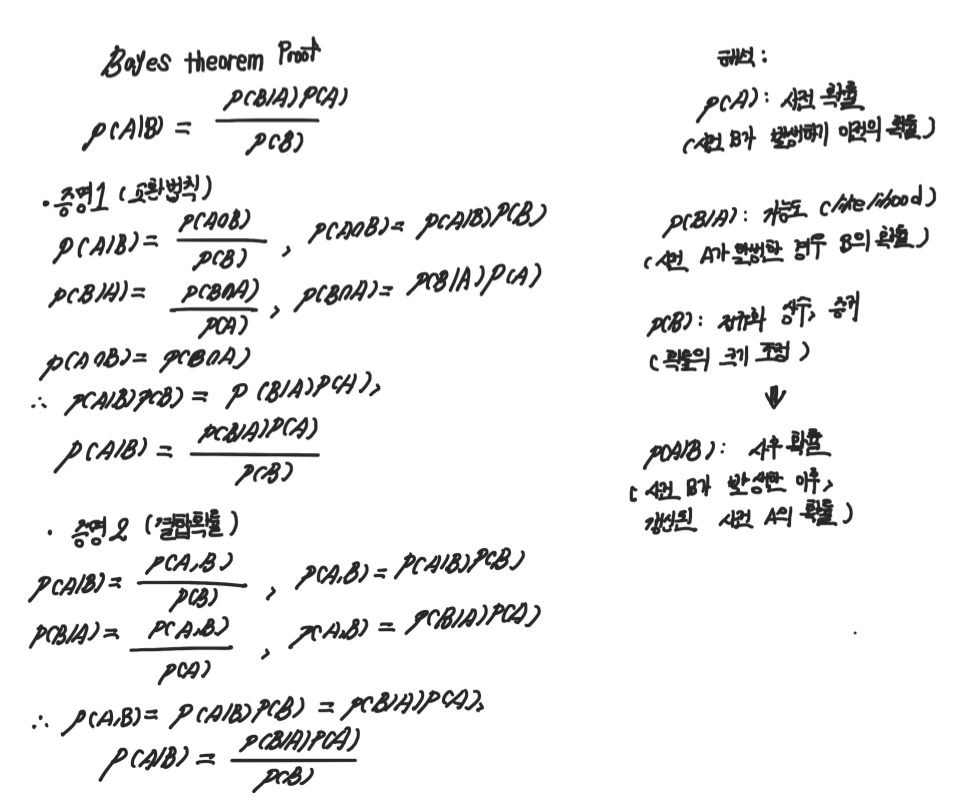 Bayes theorem Proof
P(A|B) = P(B|A)P(A) / P(B)
· 증명1 (교환법칙)
P(A|B) = P(A∩B) / P(B) , P(A∩B) = P(A|B)P(B)
P(B|A) = P(B∩A) / P(A) , P(B∩A) = P(B|A)P(A)
P(A∩B) = P(B∩A)
∴ P(A|B)P(B) = P(B|A)P(A),
P(A|B) = P(B|A)P(A) / P(B)
· 증명2 (결합확률)
P(A|B) = P(A,B) / P(B) , P(A,B) = P(A|B)P(B)
P(B|A) = P(A,B) / P(A) , P(A,B) = P(B|A)P(A)
∴ P(A,B) = P(A|B)P(B) = P(B|A)P(A),
P(A|B) = P(B|A)P(A) / P(B)
해석 :
P(A) : 사전 확률
(사건 B가 발생하기 이전의 확률)
P(B|A) : 가능도 (likelihood)
(사건 A가 발생한 경우 B의 확률)
P(B) : 정규화 상수, 증거
(확률의 크기 조정)
⇓
P(A|B) : 사후 확률
(사건 B가 발생한 이후,
갱신된 사건 A의 확률)